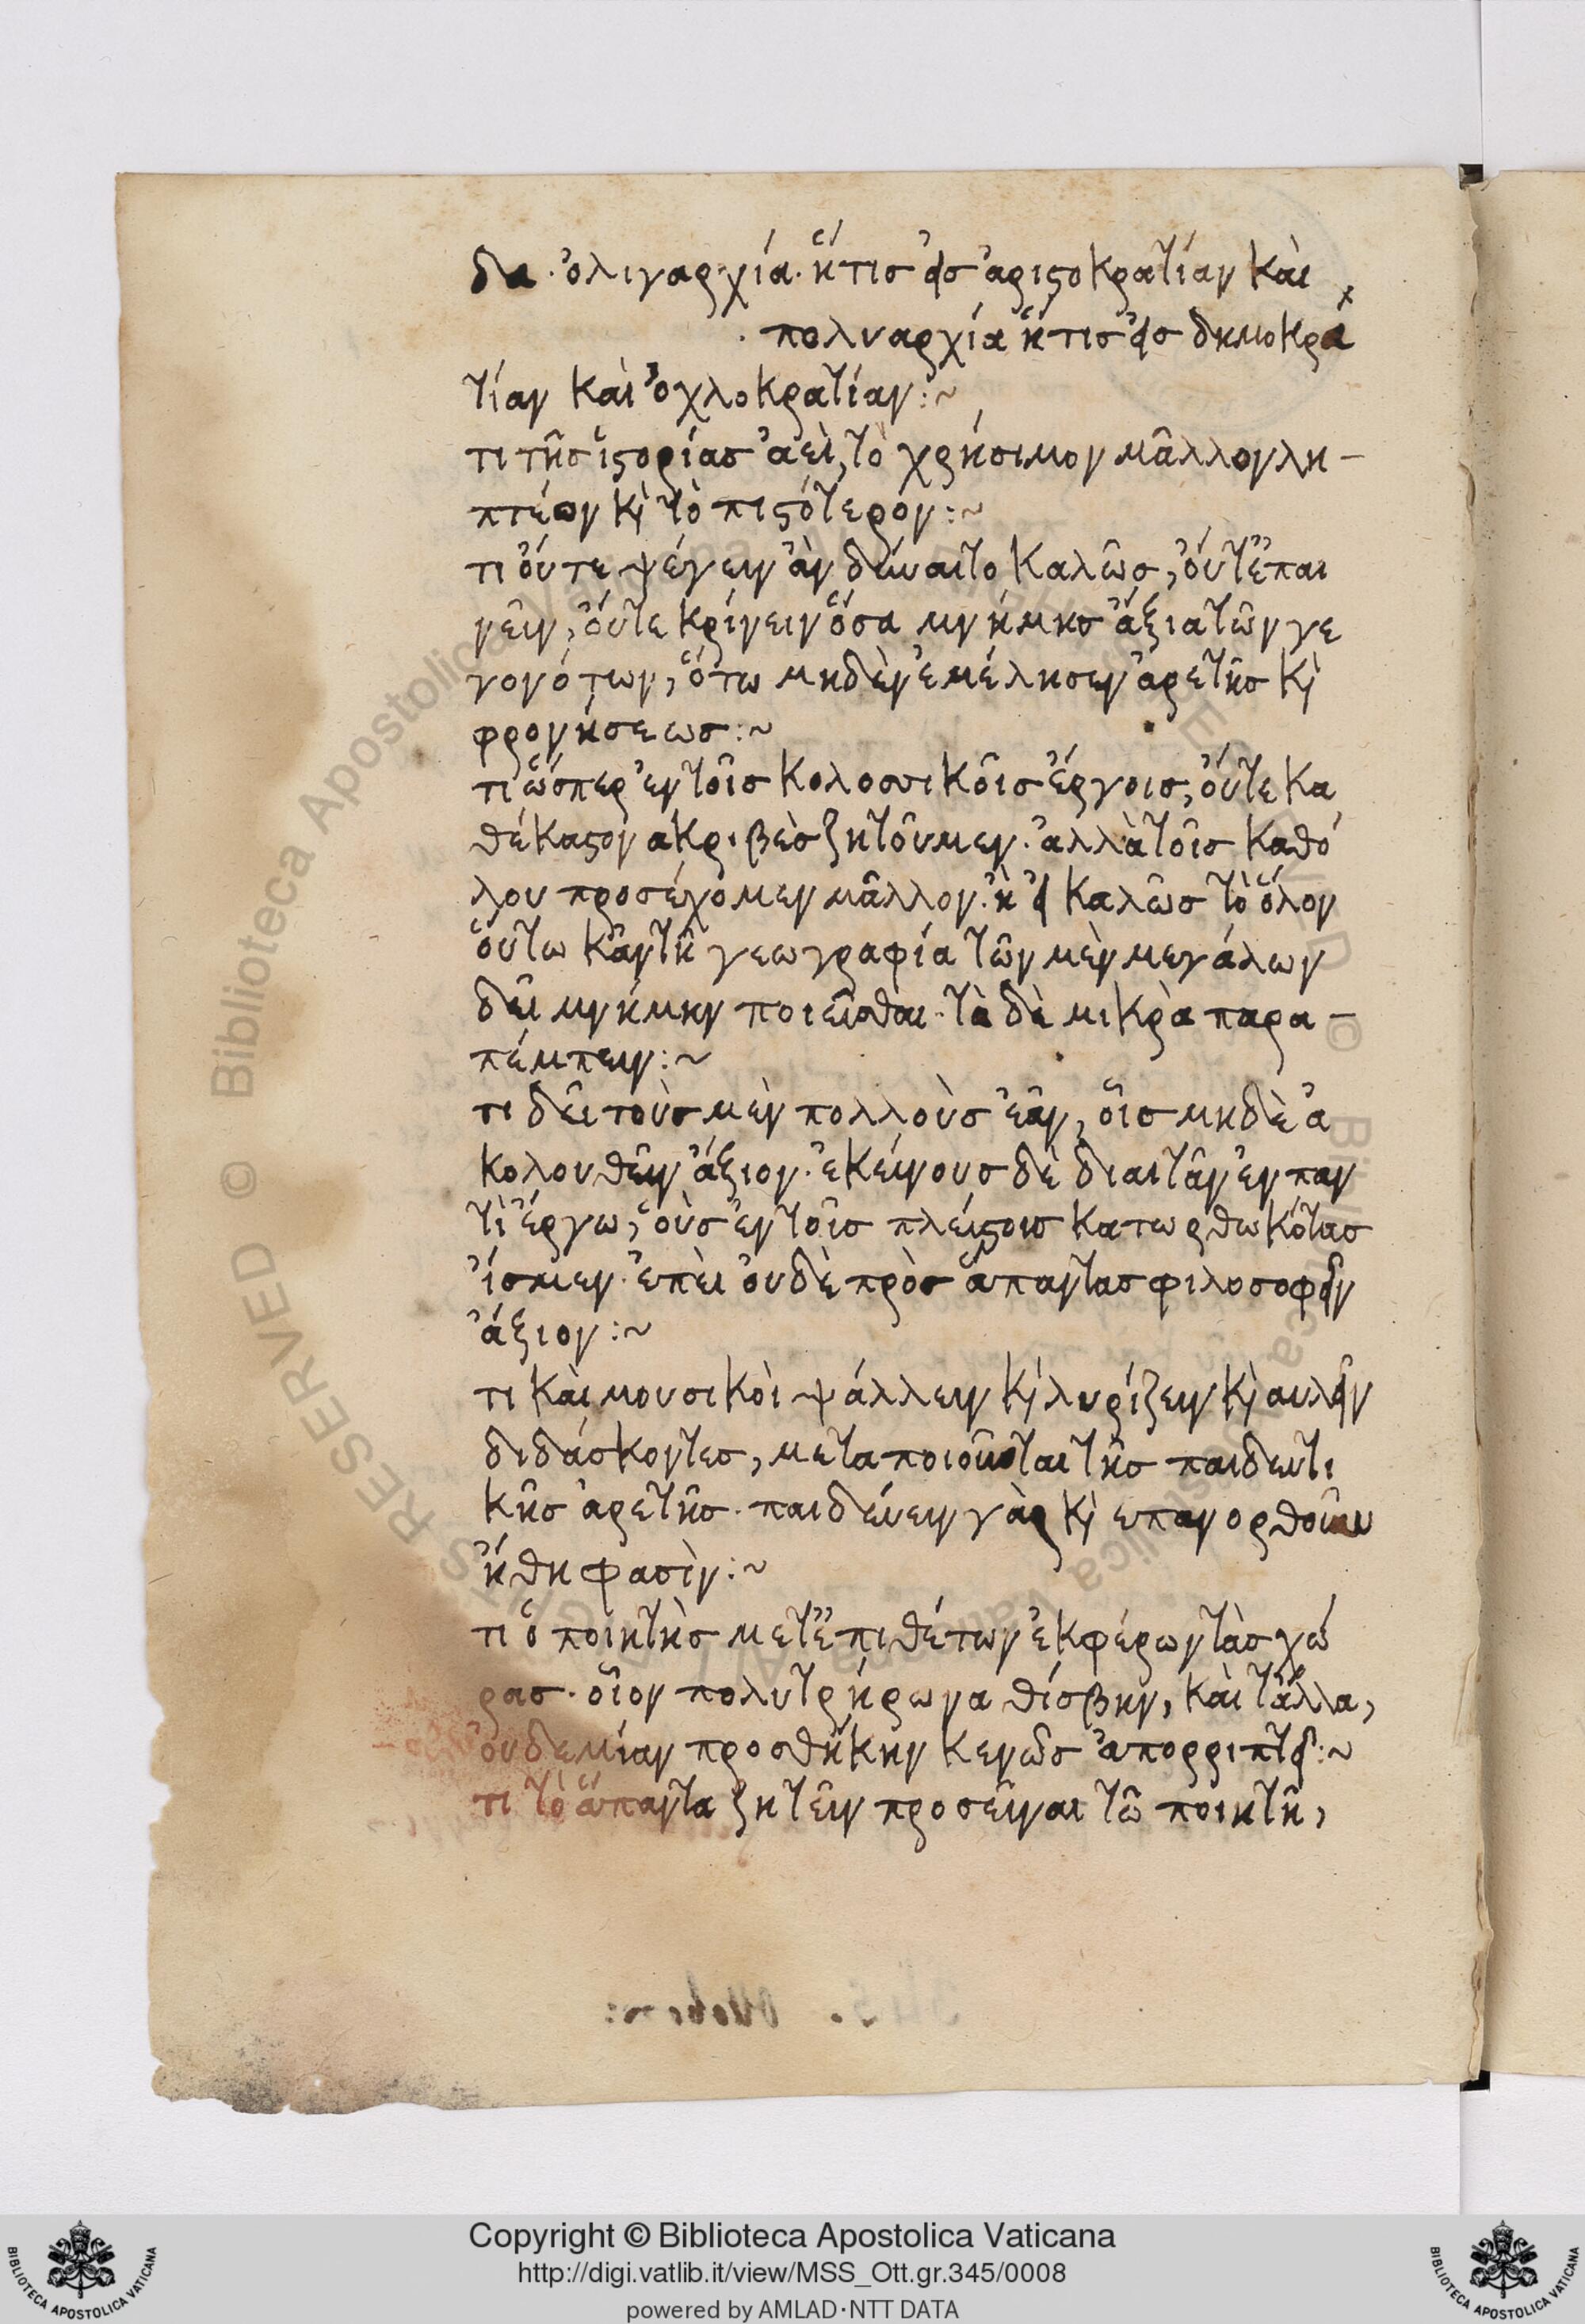 δα· ὀλιγαρχία· ἥτις εἰς ἀριστοκρατίαν καὶ
· πολυαρχία ἥτις εἰς δημοκρα
τίαν καὶ ὀχλοκρατίαν :~
τι τῆς ἱστορίας ἀεὶ, τὸ χρήσιμον μᾶλλον λη-
πτέον κ̀ τὸ πιστότερον :~
τι οὔτε ψέγειν ἂν δύναιτο καλῶς, οὔτ' ἐπαι
νεῖν, οὔτε κρίνειν ὅσα μνήμης ἄξια τῶν γε
γονότων, ὅτω μηδὲν ἐμέλησεν ἀρετῆς κ̀
φρονήσεως :~
τι ὥσπερ ἐν τοῖς κολοσικοῖς ἔργοις, οὔτε κα
θέκαστον ακριβὲς ζητοῦμεν· ἀλλὰ τοῖς καθό
λου προσέχομεν μᾶλλον· ἢ εἰ καλῶς τὸ ὅλον
οὕτω κἂν τῆ γεωγραφία τῶν μὲν μεγάλων
δεῖ μνήμην ποιεῖσθαι· τὰ δὲ μικρὰ παρα-
πέμπειν :~
τι δεῖ τοὺς μὲν πολλοὺς ἐᾶν, οἷς μηδὲ ἀ
κολουθεῖν ἄξιον· ἐκείνους δὲ διαιτᾶν ἐν παν
τὶ ἔργω, οὓς ἐν τοῖς πλείστοις κατωρθωκότας
ἴσμεν· ἐπεὶ οὐδὲ πρὸς ἅπαντας φιλοσοφεῖν
ἄξιον :~
τι καὶ μουσικοὶ ψάλλειν κ̀ λυρίζειν κ̀ αυλεῖν
διδάσκοντες, μεταποιοῦνται τῆς παιδευτι
κῆς ἀρετῆς· παιδεύειν γὰρ κ̀ επανορθοῦν
ἤθη φασὶν :~
τι ὁ ποιητὴς μετ' ἐπιθέτων ἐκφέρων τὰς χώ
ρας· οἷον πολυτρήρωνα θίσβην, καὶ τἄλλα,
οὐδεμίαν προσθήκην κενῶς ἀπορρίπτει :~
τι τὸ ἅπαντα ζητεῖν προσεῖναι τῶ ποιητῆ,
Copyright © Biblioteca Apostolica Vaticana
http://digi.vatlib.it/view/MSS_Ott.gr.345/0008
powered by AMLAD·NTT DATA
BIBLIOTECA APOSTOLICA VATICANA
BIBLIOTECA APOSTOLICA VATICANA